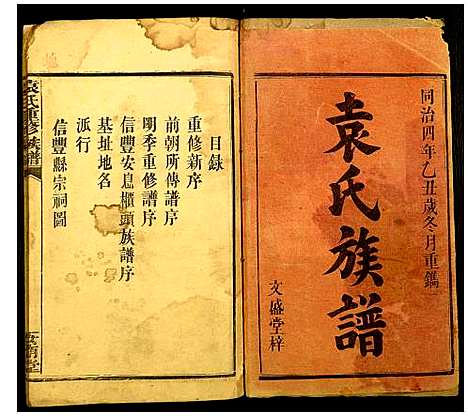 同治四年乙丑歲冬月重鐫
袁氏族譜
文盛堂梓
目錄
重修新序
前朝所傳譜序
明季重修譜序
信豐安息櫃頭族譜序
基址地名
派行
信豐縣宗祠圖
袁氏重修族譜